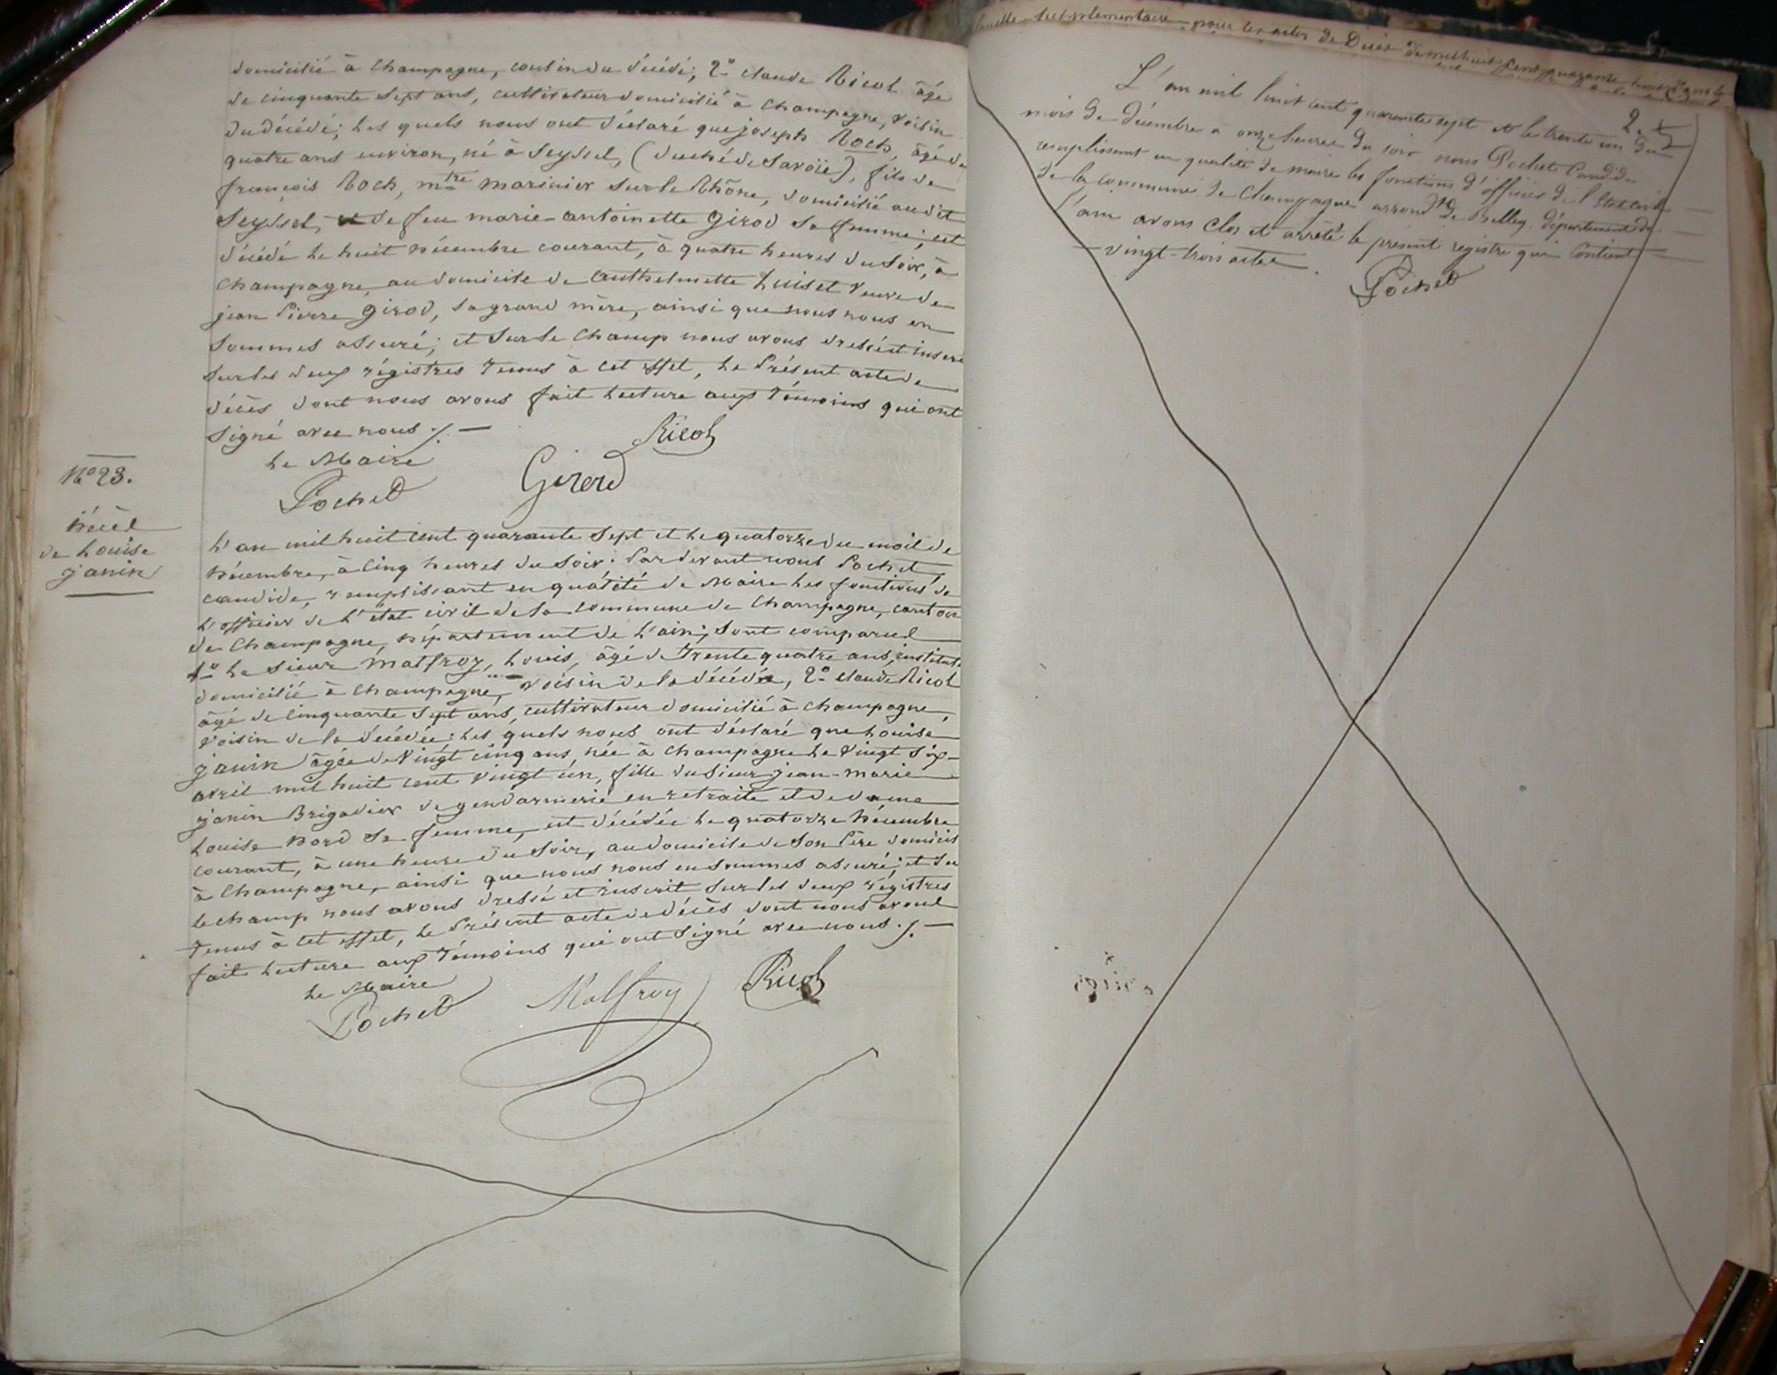 domicilié à Champagne, cousin du décédé; 2° Claude Ricol âgé
de cinquante sept ans, cultivateur domicilié à Champagne, voisin
du décédé; les quels nous ont déclaré que joseph Roch, âgé de
quatre ans environ, né à Seyssel, (duché de Savoie), fils de
françois Roch, mtre marinier sur le Rhône, domicilié au dit
Seyssel, et de feu marie-antoinette Girod sa femme; est
décédé le huit Décembre courant, à quatre heures du soir, à
Champagne, au domicile de Anthelmette Luiset veuve de
jean Pierre Girod, sa grand mère, ainsi que nous nous en
sommes assuré; et sur le champ nous avons dressé et inscrit
sur les deux régistres tenus à cet effet, le Présent acte de
décès dont nous avons fait lecture aux témoins qui ont
signé avec nous ./. —
Le Maire Ricol
Pochet Girod
No 23.
Décès
de Louise
janin
L'an mil huit cent quarante sept et le quatorze du mois de
Décembre, à cinq heures du soir: Par devant nous Pochet,
candide, remplissant en qualité de Maire les fonctions de
l'officier de l'état civil de la commune de Champagne, canton
de Champagne, Département de l'ain; sont comparus
1° le sieur Malfroy, Louis, âgé de trente quatre ans, institut
domicilié à Champagne, voisin de la décédée, 2° Claude Ricol
âgé de cinquante sept ans, cultivateur domicilié à Champagne,
voisin de la décédée; les quels nous ont déclaré que Louise
janin âgée de vingt cinq ans, née à Champagne le vingt six
avril mil huit cent vingt un, fille du sieur jean-marie
janin Brigadier de gendarmerie en retraite et de dame
Louise Bord sa femme, est décédée le quatorze Décembre
courant, à une heure du soir, au domicile de son Père domicil
à Champagne, ainsi que nous nous en sommes assuré; et su
le champ nous avons dressé et inscrit sur les deux régistres
tenus à cet effet, le Présent acte de décès dont nous avons
fait lecture aux témoins qui ont signé avec nous ./. —
Le Maire
Pochet Malfroy Ricol
feuille supplémentaire pour les actes de Décès de mil huit cent quarante
L'an mil huit cent quarante sept et le trente un du
mois de décembre à onze heures du soir nous Pochet Candide
remplissant en qualité de maire les fonctions d'officier de l'état civil
de la commune de Champagne arrondt de Belley, département de
l'ain avons clos et arrêté le présent registre qui contient
vingt-trois actes.
Pochet